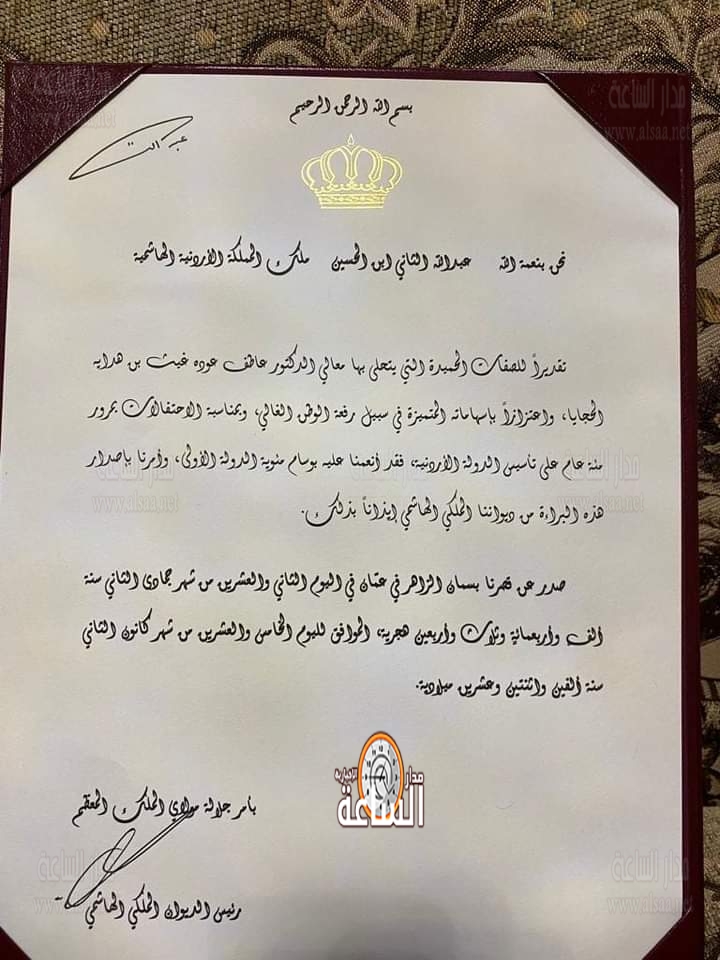 بسم الله الرحمن الرحيم
مدار الساعة
www.alsaa.net
نحن بنعمة الله عبدالله الثاني ابن الحسين ملك المملكة الأردنية الهاشمية
تقديراً للصفات الحميدة التي يتحلى بها معالي الدكتور عاطف عوده غيث بن هدايه
الحجايا، واعتزازاً بإسهاماته المتميزة في سبيل رفعة الوطن الغالي، وبمناسبة الاحتفالات بمرور
مئة عام على تأسيس الدولة الأردنية، فقد أنعمنا عليه بوسام مئوية الدولة الأولى، وأمرنا بإصدار
هذه البراءة من ديواننا الملكي الهاشمي إيذاناً بذلك.
صدر عن قصرنا بسمان الزاهر في عمّان في اليوم الثاني والعشرين من شهر جمادى الثاني سنة
ألف وأربعمائة وثلاث وأربعين هجرية، الموافق لليوم الخامس والعشرين من شهر كانون الثاني
سنة ألفين واثنتين وعشرين ميلادية.
مدار الإخبارية
الساعة
بأمر جلالة مولاي الملك المعظم
رئيس الديوان الملكي الهاشمي
مدار الساعة
www.alsaa.net